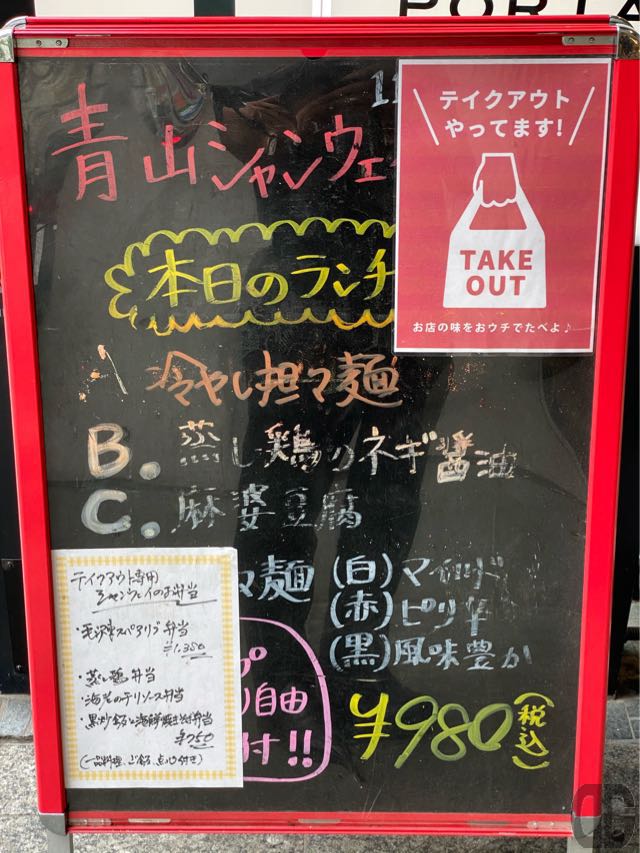 PORTA
11
青山シャンウェ
テイクアウト
やってます!
TAKE
OUT
お店の味をおウチでたべよ♪
本日のランチ
A 冷やし担々麺
B. 蒸し鶏のネギ醤油
C. 麻婆豆腐
々麺 (白) マイルド
(赤) ピリ辛
(黒) 風味豊か
自由
付!!
¥980 (税込)
テイクアウト専用
シャンウェイのお弁当
・毛沢東スペアリブ弁当
¥1.350
・蒸し鶏弁当
・海老のチリソース弁当
・黒炒飯と海鮮焼きそば弁当
¥750
(一品料理、ご飯、点心付き)